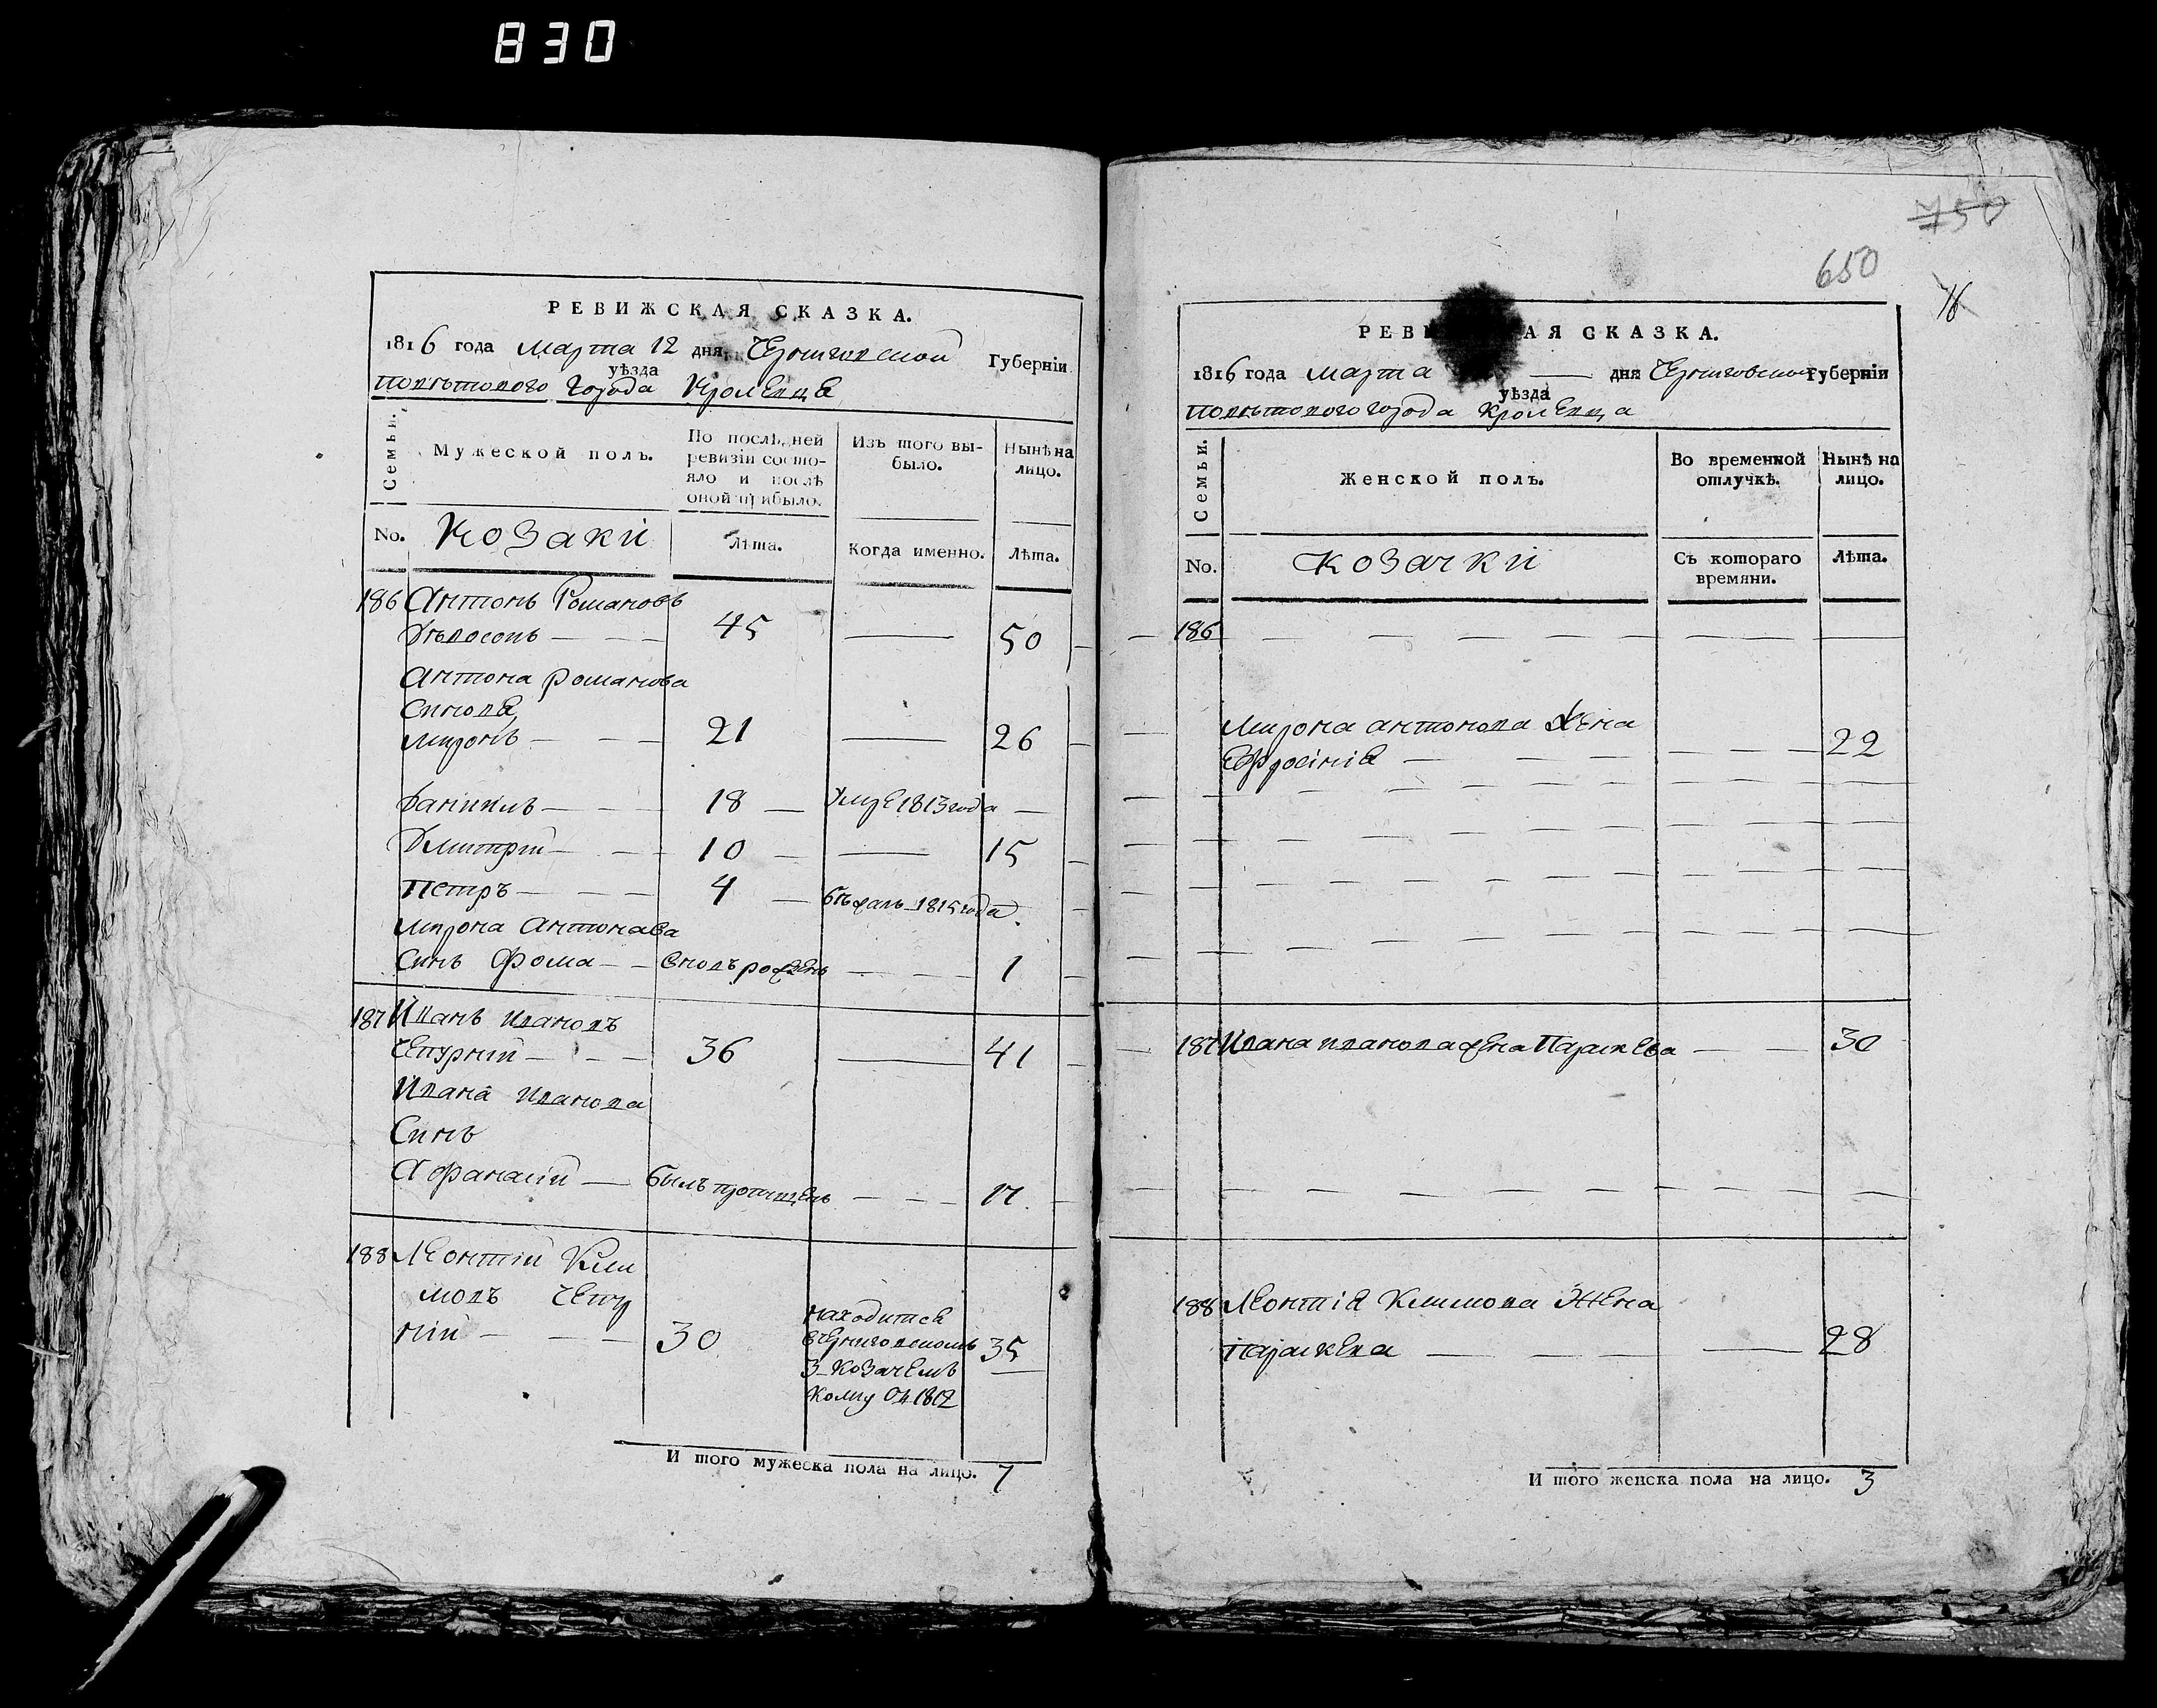 830
РЕВИЖСКАЯ СКАЗКА.
1816 года Марта 12 дня Черниговской Губерніи
уѣзда
поветового города Кролевца
Семьи.
Мужеской полъ.
По послѣдней ревизіи состояло и послѣ оной прибыло.
Изъ того выбыло.
Нынѣ на лицо.
No. Козаки Лѣта. Когда именно. Лѣта.
186 Антонъ Романовъ
45 50
Антона Романова
Синове
Миронъ 21 26
Даниилъ 18 Умре 1813 года
Дмитрій 10 15
Петръ 4 1815 года
Мирона Антонова
Синъ Фома вновъ рожденъ 1
187 Иванъ Ивановъ
Чепурній 36 41
Ивана Иванова
Синъ
Афанасій былъ пропищенъ
188 Леонтій Кли
мовъ Чепу
рній 30 35
находится
в Черниговском
3 козачемъ
полку от 1812
И того мужеска пола на лицо. 7
750
650
76
РЕВИ АЯ СКАЗКА.
1816 года Марта дня Черниговской Губерніи
уѣзда
поветового города Кролевца
Семьи.
Женской полъ.
Во временной отлучкѣ.
Нынѣ на лицо.
No. Козачки Съ котораго времяни. Лѣта.
186
Мирона Антонова Жена
Ефросіния 22
187 Ивана Иванова жена Параскева 30
188 Леонтія Климова Жена
Параскева 28
И того женска пола на лицо. 3